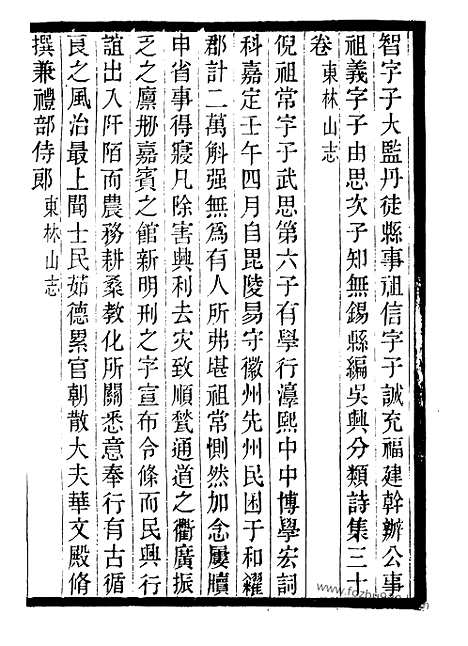 智字子大監丹徒縣事祖信字子誠充福建幹辦公事
祖義字子由思次子知無錫縣編吳興分類詩集三十
卷東林山志
倪祖常字子武思第六子有學行淳熙中中博學宏詞
科嘉定壬午四月自毘陵易守徽州先州民困于和糴
郡計二萬斛强無爲有人所弗堪祖常惻然加念屢牘
申省事得寢凡除害興利去灾致順甃通道之衢廣振
乏之廪剏嘉賓之館新明刑之字宣布令條而民興行
誼出入阡陌而農務耕桑教化所關悉意奉行有古循
良之風治最上聞士民茹德累官朝散大夫華文殿脩
撰兼禮部侍郞東林山志